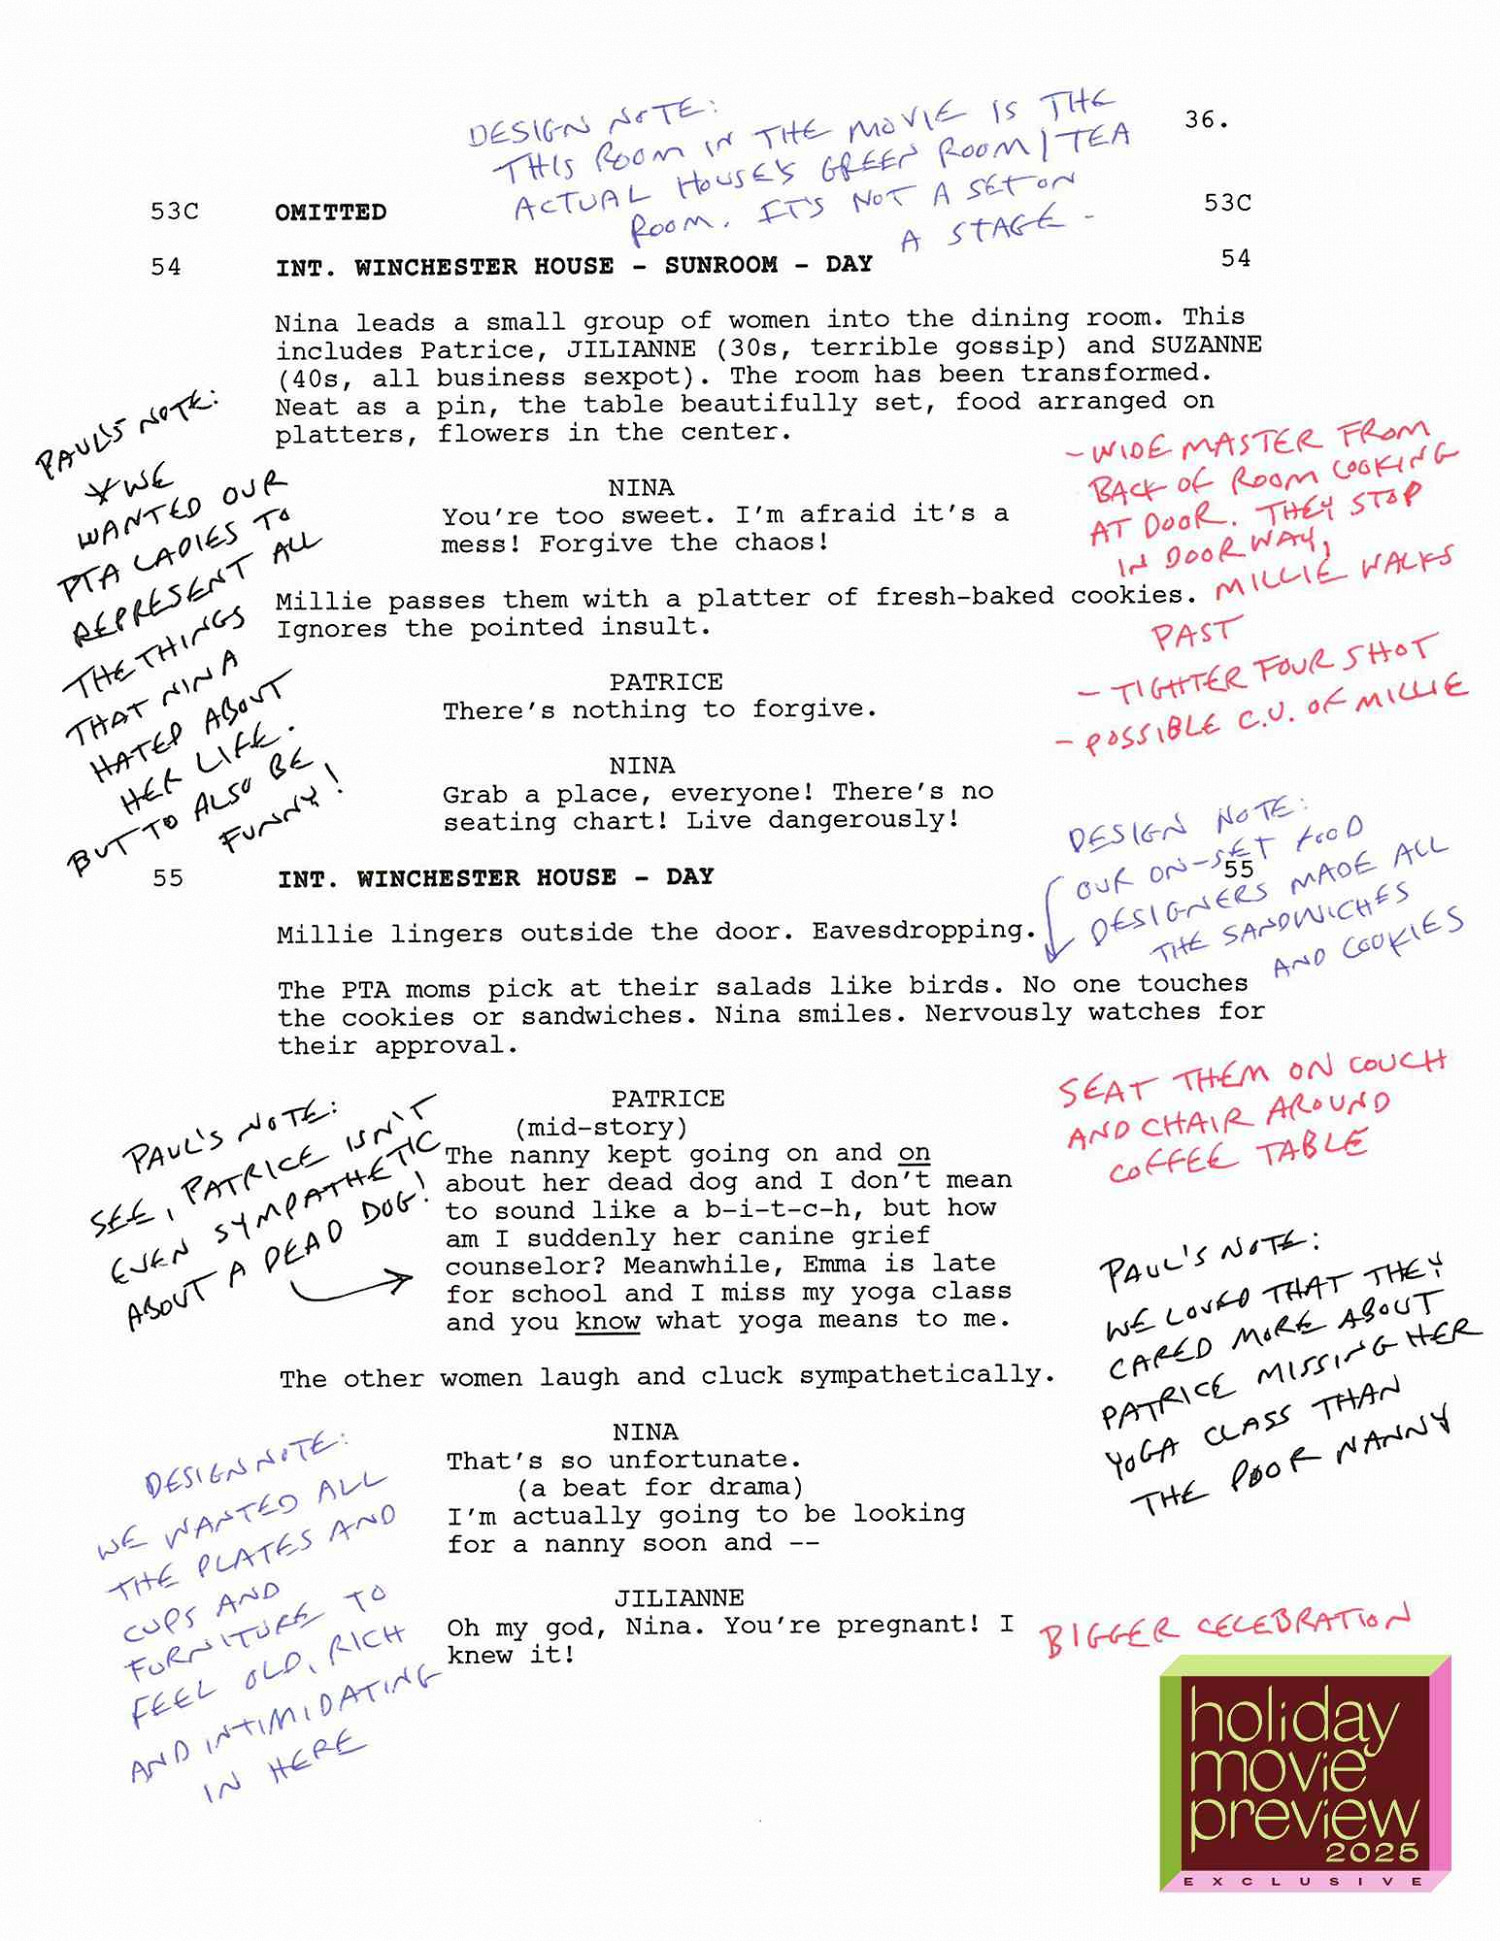 DESIGN NOTE:
THIS ROOM IN THE MOVIE IS THE
ACTUAL HOUSE'S GREEN ROOM/TEA
ROOM. IT'S NOT A SET ON
A STAGE -
36.
53C OMITTED 53C
54 INT. WINCHESTER HOUSE - SUNROOM - DAY 54
Nina leads a small group of women into the dining room. This
includes Patrice, JILIANNE (30s, terrible gossip) and SUZANNE
(40s, all business sexpot). The room has been transformed.
Neat as a pin, the table beautifully set, food arranged on
platters, flowers in the center.
PAUL'S NOTE:
*WE
WANTED OUR
PTA LADIES TO
REPRESENT ALL
THE THINGS
THAT NINA
HATED ABOUT
HER LIFE.
BUT TO ALSO BE
FUNNY!
- WIDE MASTER FROM
BACK OF ROOM COOKING
AT DOOR. THEY STOP
IN DOORWAY,
MILLIE WALKS
PAST
- TIGHTER FOUR SHOT
- POSSIBLE C.U. OF MILLIE
NINA
You're too sweet. I'm afraid it's a
mess! Forgive the chaos!
Millie passes them with a platter of fresh-baked cookies.
Ignores the pointed insult.
PATRICE
There's nothing to forgive.
NINA
Grab a place, everyone! There's no
seating chart! Live dangerously!
DESIGN NOTE:
OUR ON-SET FOOD
DESIGNERS MADE ALL
THE SANDWICHES
AND COOKIES
55 INT. WINCHESTER HOUSE - DAY 55
Millie lingers outside the door. Eavesdropping.
The PTA moms pick at their salads like birds. No one touches
the cookies or sandwiches. Nina smiles. Nervously watches for
their approval.
SEAT THEM ON COUCH
AND CHAIR AROUND
COFFEE TABLE
PAUL'S NOTE:
SEE, PATRICE ISN'T
EVEN SYMPATHETIC
ABOUT A DEAD DOG!
PATRICE
(mid-story)
The nanny kept going on and on
about her dead dog and I don't mean
to sound like a b-i-t-c-h, but how
am I suddenly her canine grief
counselor? Meanwhile, Emma is late
for school and I miss my yoga class
and you know what yoga means to me.
PAUL'S NOTE:
WE LOVED THAT THEY
CARED MORE ABOUT
PATRICE MISSING HER
YOGA CLASS THAN
THE POOR NANNY
The other women laugh and cluck sympathetically.
NINA
That's so unfortunate.
(a beat for drama)
I'm actually going to be looking
for a nanny soon and --
DESIGN NOTE:
WE WANTED ALL
THE PLATES AND
CUPS AND
FURNITURE TO
FEEL OLD, RICH
AND INTIMIDATING
IN HERE
JILIANNE
Oh my god, Nina. You're pregnant! I
knew it!
BIGGER CELEBRATION
holiday
movie
preview
2025
EXCLUSIVE